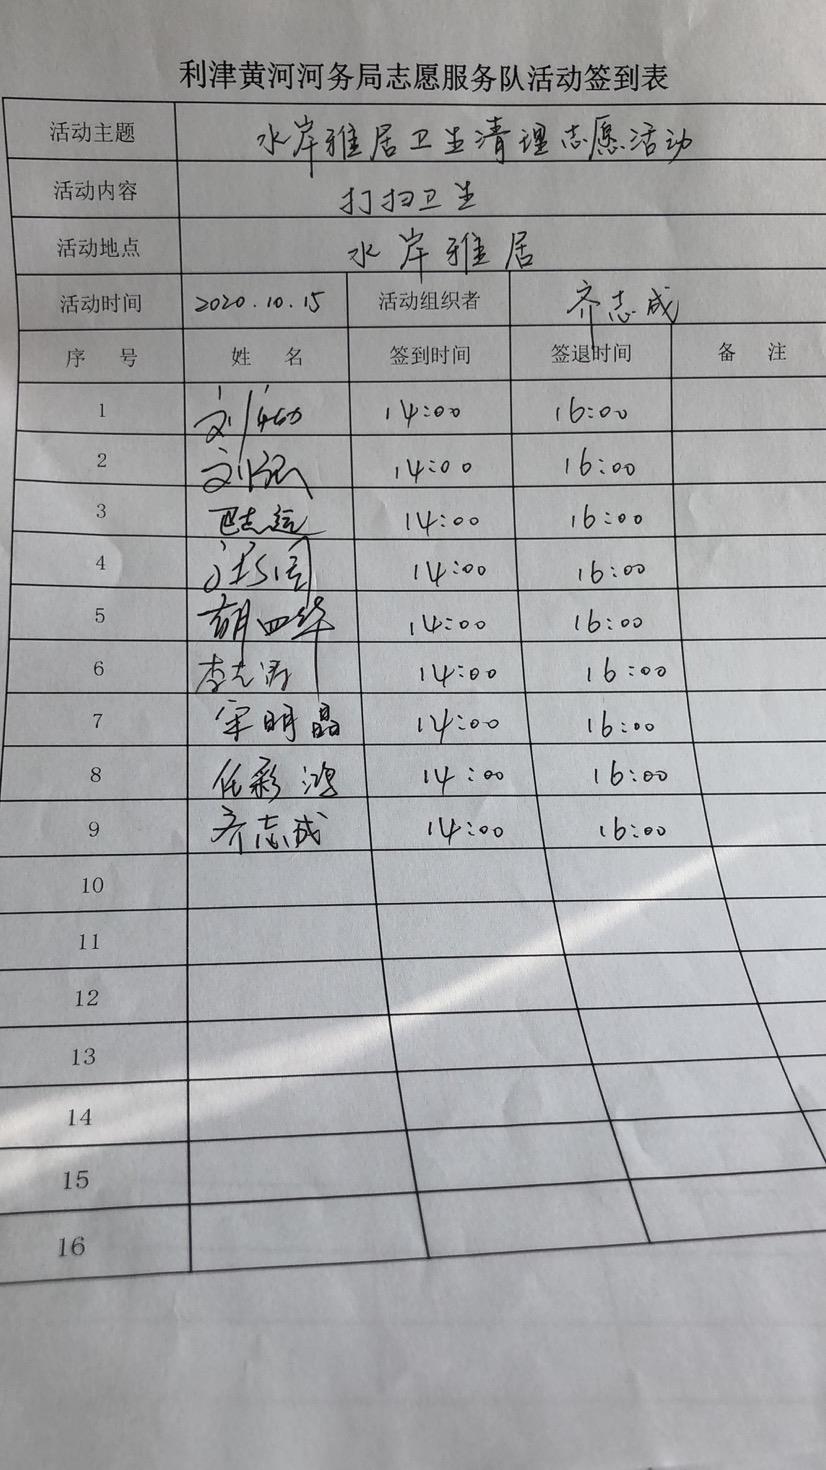 利津黄河河务局志愿服务队活动签到表
活动主题 水岸雅居卫生清理志愿活动
活动内容 打扫卫生
活动地点 水岸雅居
活动时间 2020.10.15 活动组织者 齐志成
序 号 姓 名 签到时间 签退时间 备 注
1 刘 14:00 16:00
2 刘 14:00 16:00
3 巴志远 14:00 16:00
4 14:00 16:00
5 胡四华 14:00 16:00
6 李志涛 14:00 16:00
7 宋明晶 14:00 16:00
8 任彩鸿 14:00 16:00
9 齐志成 14:00 16:00
10
11
12
13
14
15
16